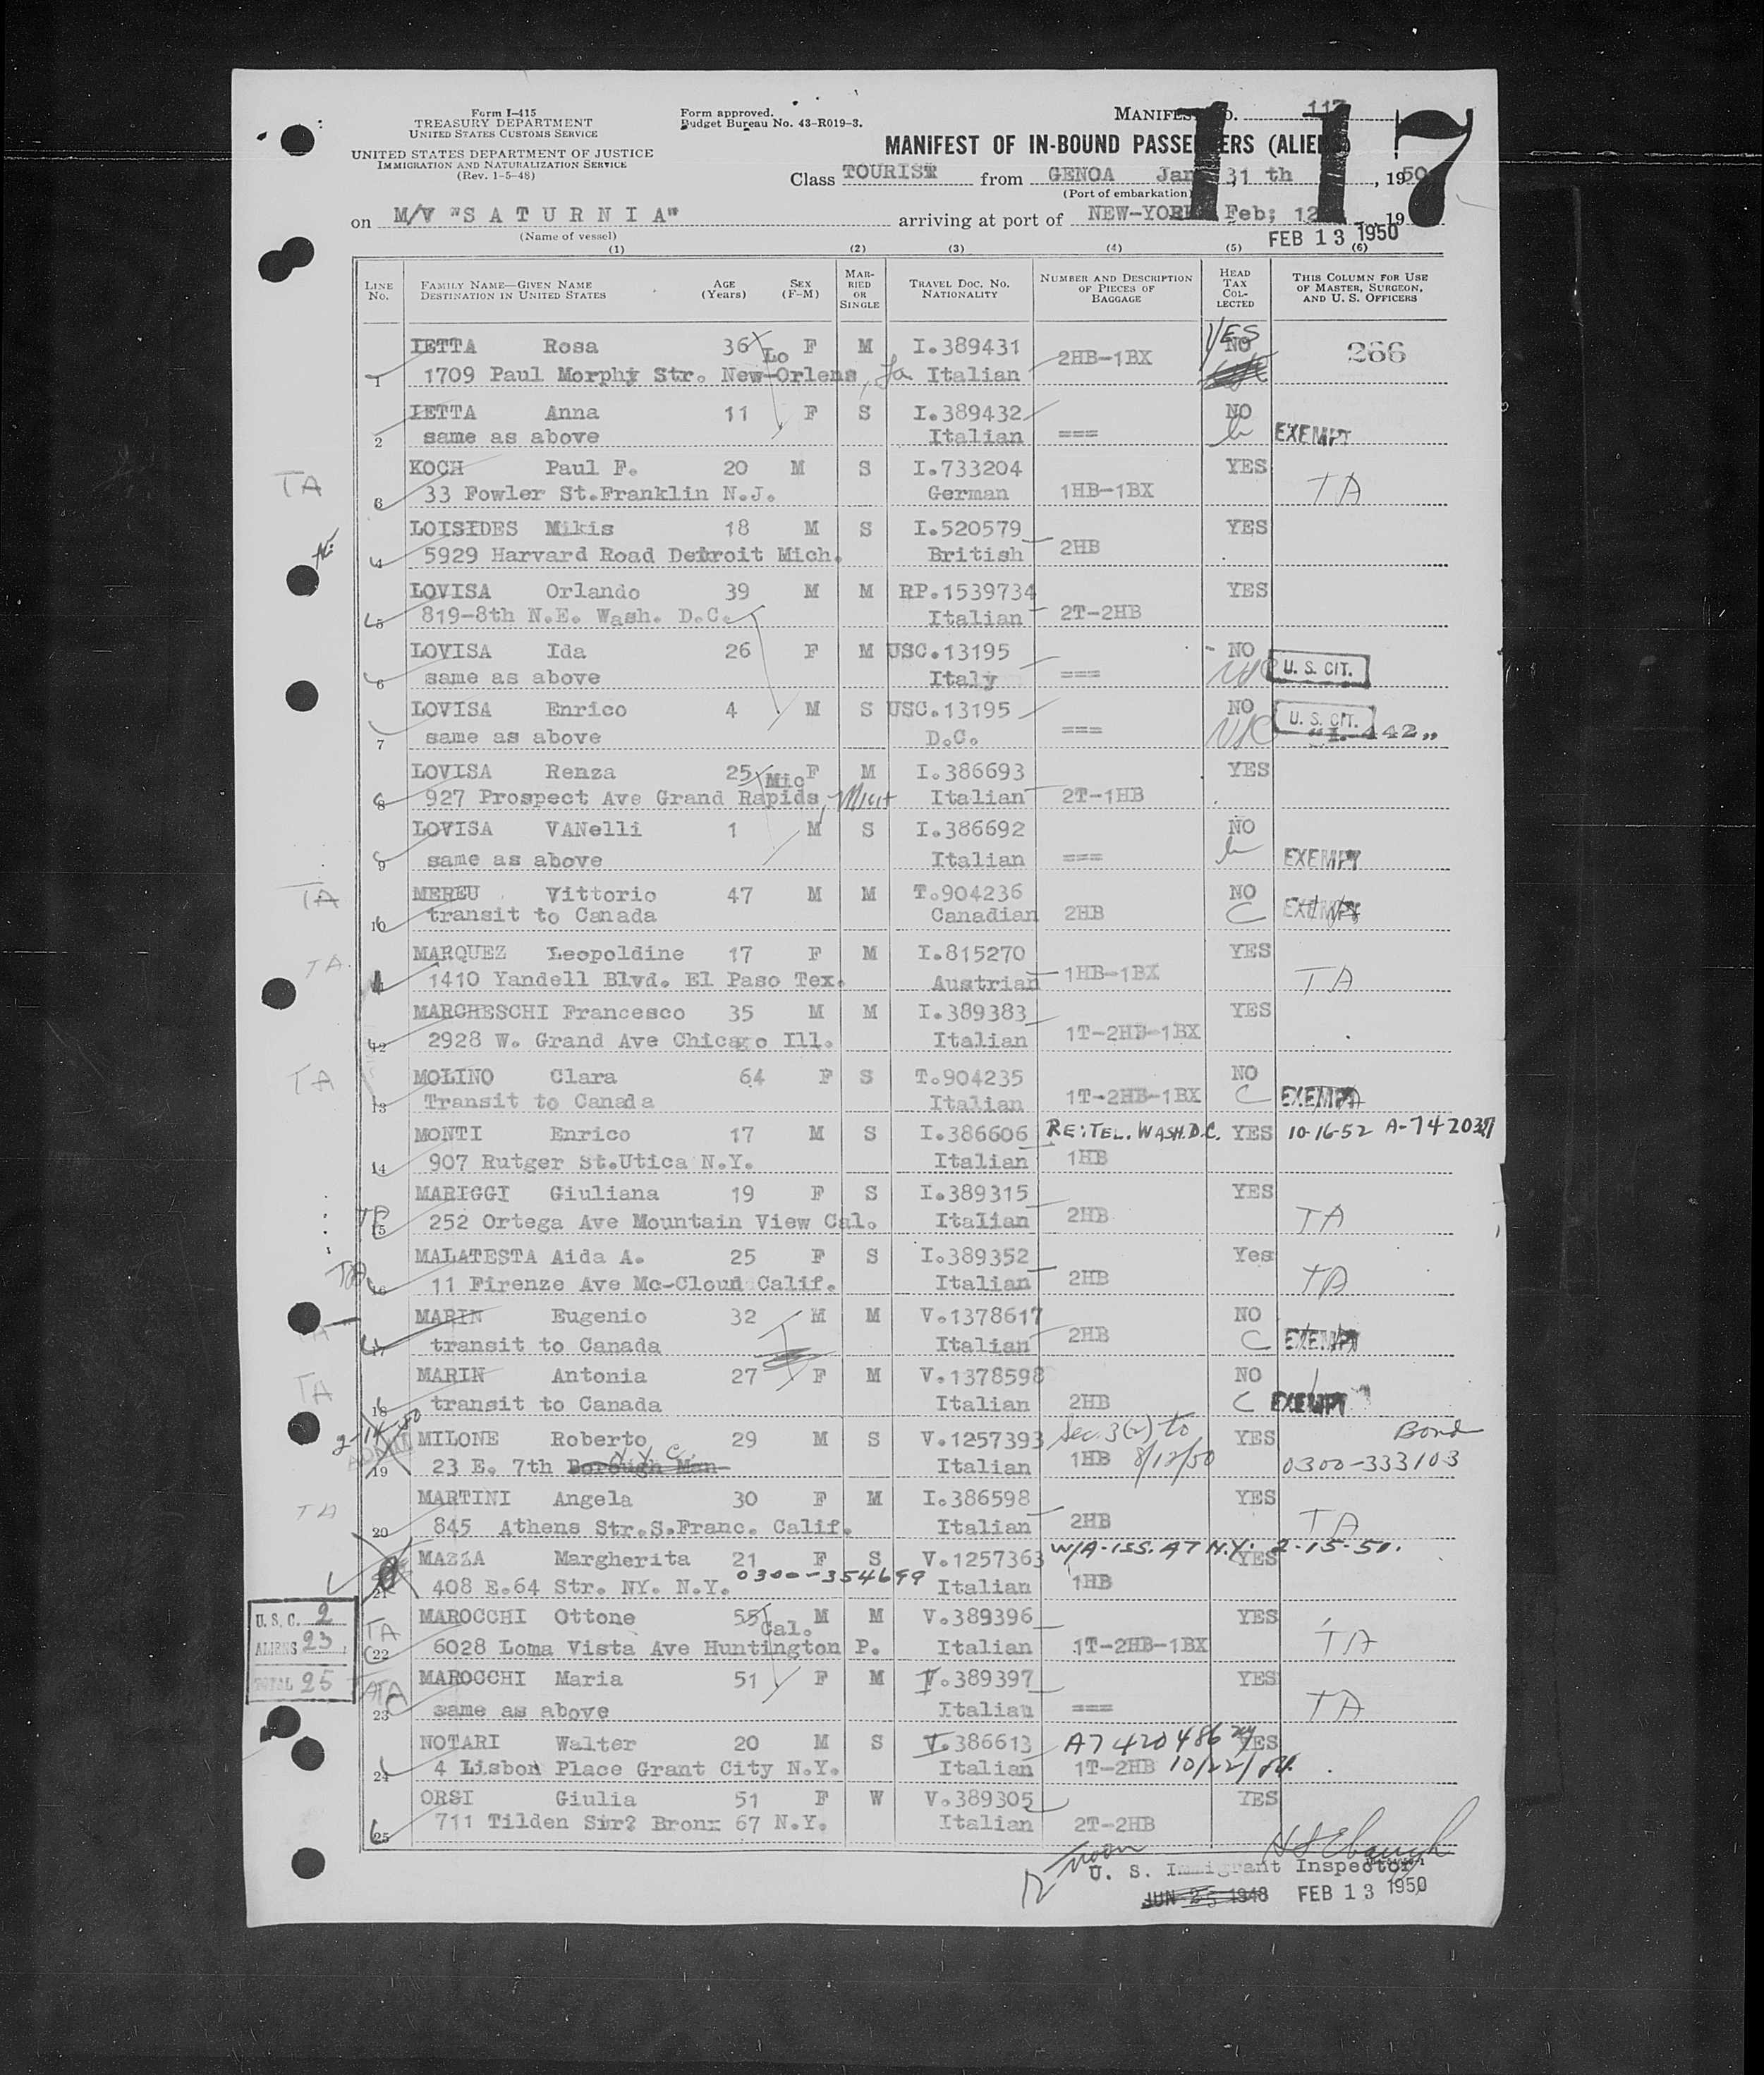 Form I-415
TREASURY DEPARTMENT
UNITED STATES CUSTOMS SERVICE
UNITED STATES DEPARTMENT OF JUSTICE
IMMIGRATION AND NATURALIZATION SERVICE
(Rev. 1-5-48)
Form approved.
Budget Bureau No. 43-R019-3.
MANIFEST NO. 117
117
MANIFEST OF IN-BOUND PASSENGERS (ALIENS)
Class TOURIST from GENOA Jan, 31 th, 1950
(Port of embarkation)
on M/V "S A T U R N I A" arriving at port of NEW-YORK Feb; 12, 19
(Name of vessel)
FEB 13 1950
(1) (2) (3) (4) (5) (6)
LINE No. FAMILY NAME—GIVEN NAME DESTINATION IN UNITED STATES AGE (Years) SEX (F-M) MARRIED OR SINGLE TRAVEL DOC. NO. NATIONALITY NUMBER AND DESCRIPTION OF PIECES OF BAGGAGE HEAD TAX COLLECTED THIS COLUMN FOR USE OF MASTER, SURGEON, AND U. S. OFFICERS
IETTA Rosa 36 F M I.389431 2HB-1BX YES NO 266
1 1709 Paul Morphy Str. New-Orlens, La Lo Italian
IETTA Anna 11 F S I.389432 NO
2 same as above Italian === EXEMPT
TA KOCH Paul F. 20 M S I.733204 YES
3 33 Fowler St.Franklin N.J. German 1HB-1BX TA
LOISIDES Mikis 18 M S I.520579 YES
4 5929 Harvard Road Detroit Mich. British 2HB
LOVISA Orlando 39 M M RP.1539734 YES
5 819-8th N.E. Wash. D.C. Italian 2T-2HB
LOVISA Ida 26 F M USC.13195 NO
6 same as above Italy === U. S. CIT.
LOVISA Enrico 4 M S USC.13195 NO
7 same as above D.C. === U. S. CIT. "I-442"
LOVISA Renza 25 F M I.386693 YES
8 927 Prospect Ave Grand Rapids, Mich Mic Italian 2T-1HB
LOVISA VANelli 1 M S I.386692 NO
9 same as above Italian === EXEMPT
TA MEREU Vittorio 47 M M T.904236 NO
10 transit to Canada Canadian 2HB C EXEMPT
TA MARQUEZ Leopoldine 17 F M I.815270 YES
1410 Yandell Blvd. El Paso Tex. Austrian 1HB-1BX TA
MARCHESCHI Francesco 35 M M I.389383 YES
12 2928 W. Grand Ave Chicago Ill. Italian 1T-2HB-1BX
TA MOLINO Clara 64 F S T.904235 NO
13 Transit to Canada Italian 1T-2HB-1BX C EXEMPT
MONTI Enrico 17 M S I.386606 RE:TEL. WASH.D.C. YES 10-16-52
14 907 Rutger St.Utica N.Y. Italian 1HB
MARIGGI Giuliana 19 F S I.389315 YES
TA 15 252 Ortega Ave Mountain View Cal. Italian 2HB TA
MALATESTA Aida A. 25 F S I.389352 Yes
TA 16 11 Firenze Ave Mc-Cloud Calif. Italian 2HB TA
MARIN Eugenio 32 M M V.1378617 NO
TA 17 transit to Canada Italian 2HB C EXEMPT
TA MARIN Antonia 27 F M V.1378598 NO
18 transit to Canada Italian 2HB C EXEMPT
2-14-50 MILONE Roberto 29 M S V.1257393 Sec. 3(2) to YES Bond
19 23 E. 7th Borough Man- N.Y.C. Italian 1HB 8/12/50 0300-333103
TA MARTINI Angela 30 F M I.386598 YES
20 845 Athens Str.S.Franc. Calif. Italian 2HB TA
MAZZA Margherita 21 F S V.1257363 W/A-ISS. AT N.Y. YES 2-15-51.
21 408 E.64 Str. NY. N.Y. 0300-354699 Italian 1HB
MAROCCHI Ottone 55 M M V.389396 YES
TA 22 6028 Loma Vista Ave Huntington P. Cal. Italian 1T-2HB-1BX TA
MAROCCHI Maria 51 F M V.389397 YES
TA 23 same as above Italian === TA
NOTARI Walter 20 M S V.386613 A7 420 486 YES
24 4 Lisbon Place Grant City N.Y. Italian 1T-2HB 10/22/
ORSI Giulia 51 F W V.389305 YES
25 711 Tilden Str? Bronx 67 N.Y. Italian 2T-2HB
U. S. C. 2
ALIENS 23
TOTAL 25
12 noon
U. S. Immigrant Inspector
JUN 25 1948 FEB 13 1950